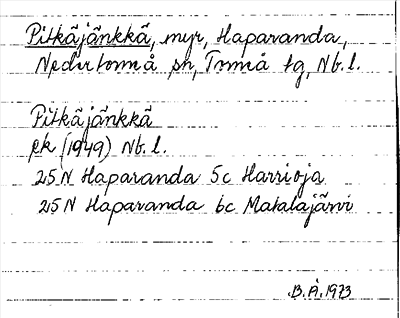 Pitkäjänkkä, myr, Haparanda,
Nedertorneå sn, Torneå tg, Nb.l.
Pitkäjänkkä
ek (1949) Nb.l.
25N Haparanda 5c Harrioja
25N Haparanda 6c Matalajärvi
B.Å.1973